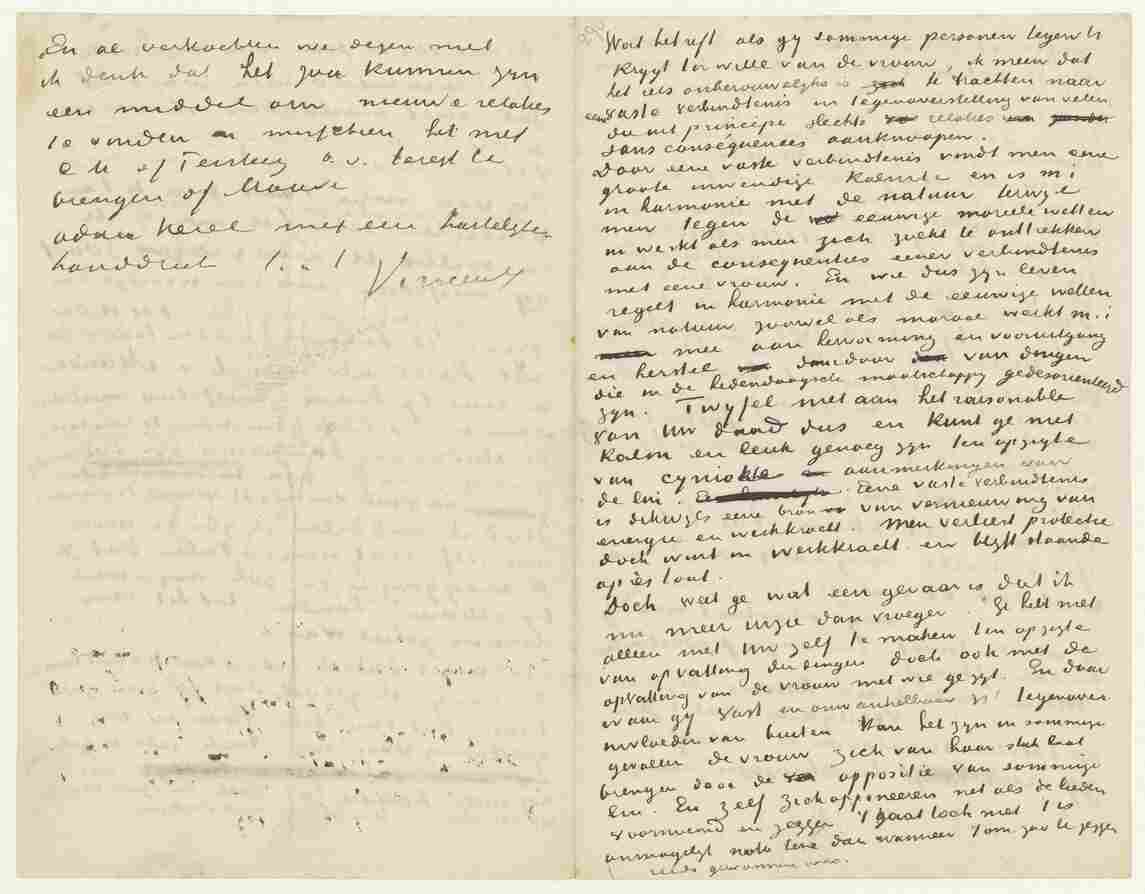 En al verkochten we dezen niet
ik denk dat het zou kunnen zyn
een middel om nieuwe relaties
te vinden en misschien het met
C M of Tersteeg o.v. teregt te
brengen of Mauve
adieu kerel met een hartelyken
handdruk t. à t. Vincent
Wat betreft als gy sommige personen tegen U
krygt ter wille van de vrouw, ik meen dat
het iets onberouwelyks is te trachten naar
eene vaste verbindtenis in tegenoverstelling van velen
die uit principe slechts relaties
sans conséquences aanknoopen.
Door eene vaste verbindtenis vindt men eene
groote inwendige kalmte en is m.i.
in harmonie met de natuur terwyl
men tegen de eeuwige moreele wetten
in werkt als men zich zoekt te onttrekken
aan de consequenties eener verbindtenis
met eene vrouw. En wie dus zyn leven
regelt in harmonie met de eeuwige wetten
van natuur zoowel als moraal werkt m.i.
mee aan hervorming en vooruitgang
en herstel daardoor van dingen
die in de hedendaagsche maatschappy gedesorienteerd
zyn. Twyfel niet aan het raisonable
van Uw daad dus en kunt ge niet
kalm en leuk genoeg zyn ten opzigte
van cynieke aanmerkingen van
de lui. Eene vaste verbindtenis
is dikwyls eene bron van vernieuwing van
energie en werkkracht. Men verliest protectie
doch wint in werkkracht en blyft staande
après tout.
Doch weet ge wat een gevaar is dat ik
nu meer inzie dan vroeger. Ge hebt niet
alleen met Uw zelf te maken ten opzigte
van opvatting der dingen doch ook met de
opvatting van de vrouw met wie ge zyt. En daar
waar gy vast en onwankelbaar zyt tegenover
invloeden van buiten kan het zyn in sommige
gevallen de vrouw zich van haar stuk laat
brengen door de oppositie van sommige
lui. En zelf zich opponeeren net als de lieden
voornoemd en zeggen 't gaat toch niet 't is
onmogelyk nota bene dan wanneer 't om zoo te zeggen
reeds gewonnen was.